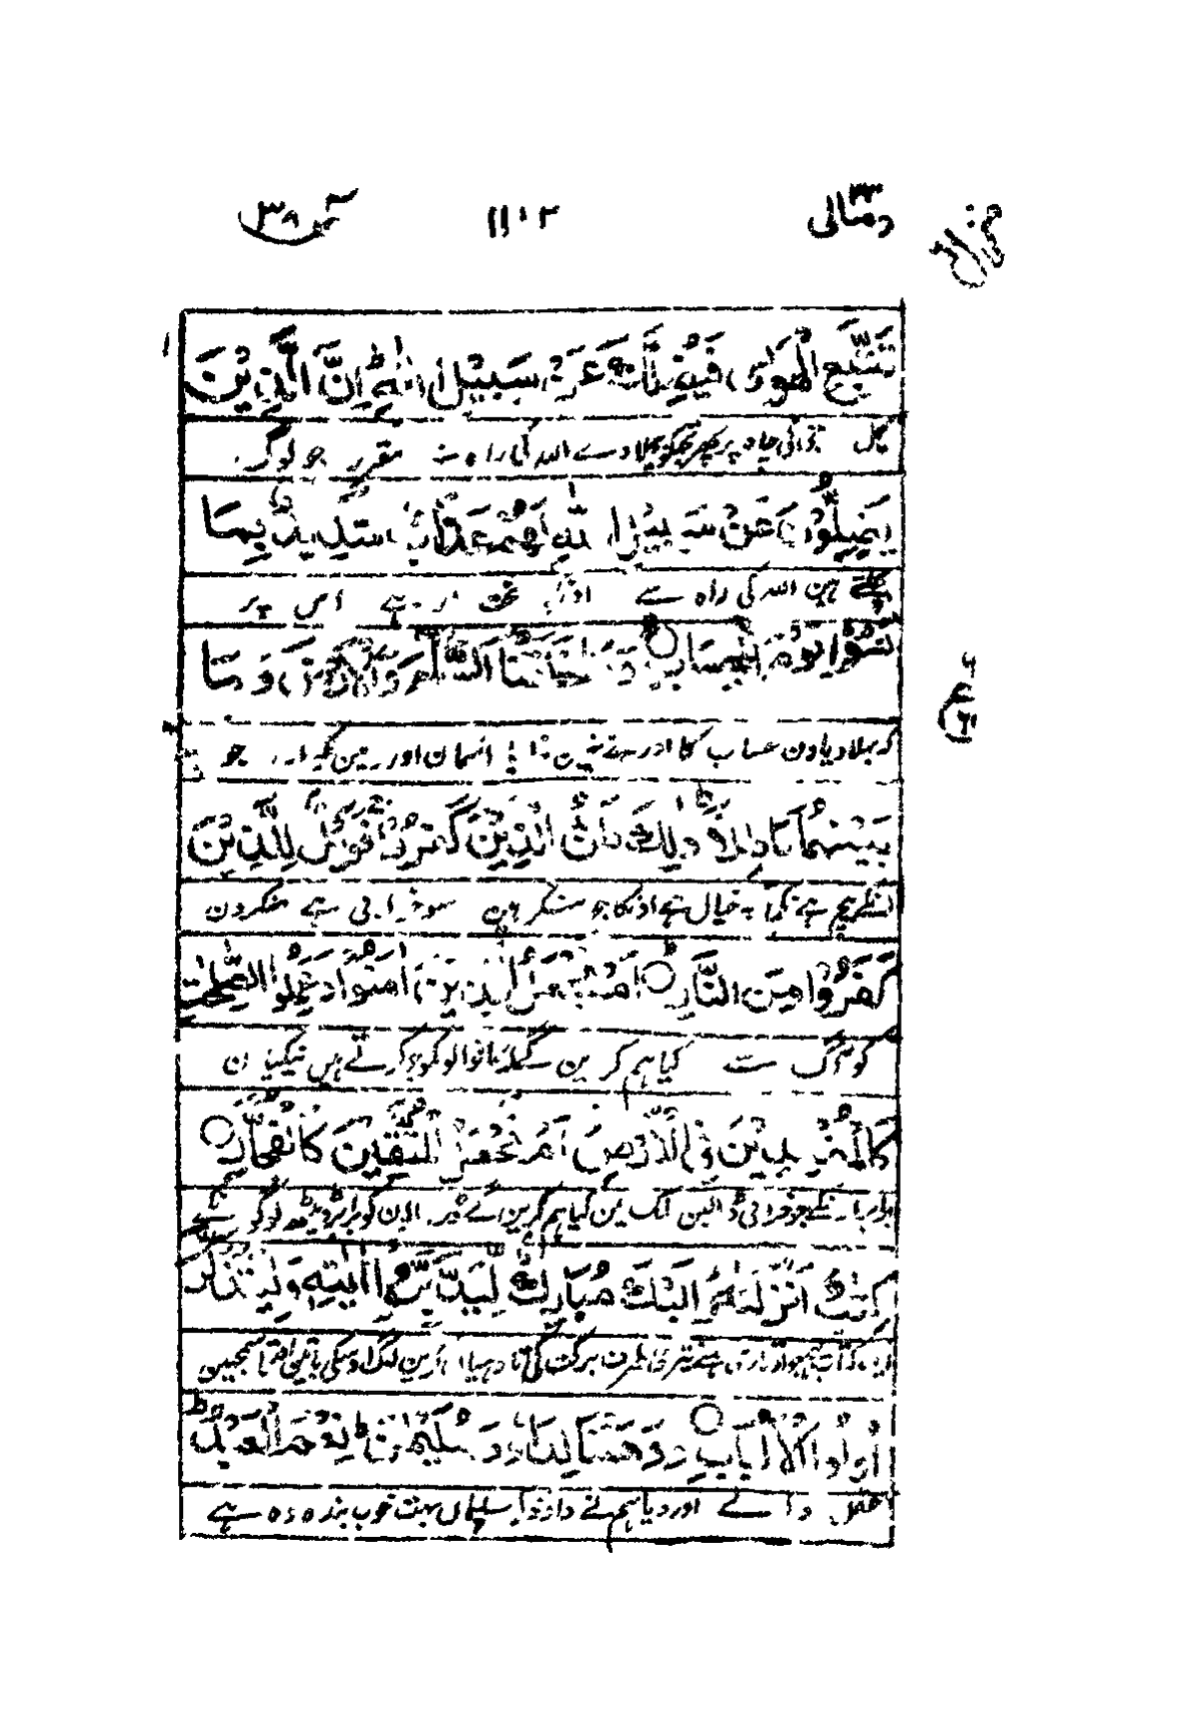 ومالی ۲۳ ۱۱۰۲ ص ۳۸
منزل ۶
تَتَّبِعِ الْهَوٰى فَيُضِلَّكَ عَنْ سَبِيْلِ اللّٰهِ ؕ اِنَّ الَّذِيْنَ
چل جی کی چاہ پر پھر تجھکو بچلا دے اللہ کی راہ سے مقرر جو لوگ
يَضِلُّوْنَ عَنْ سَبِيْلِ اللّٰهِ لَهُمْ عَذَابٌ شَدِيْدٌۢ بِمَا
بچلتے ہین اللہ کی راہ سے اونکو سخت مار ہے اس پر
نَسُوْا يَوْمَ الْحِسَابِ ○ وَمَا خَلَقْنَا السَّمَآءَ وَالْاَرْضَ وَمَا
ع
کہ بھلا دیا دن حساب کا اور ہمنے نہین بنایا آسمان اور زمین کو اور جو
بَيْنَهُمَا بَاطِلًا ؕ ذٰلِكَ ظَنُّ الَّذِيْنَ كَفَرُوْا ۚ فَوَيْلٌ لِّلَّذِيْنَ
انکے بیچ ہے نکما یہ خیال ہے اونکا جو منکر ہین سو خرابی ہے منکرون
كَفَرُوْا مِنَ النَّارِ ○ اَمْ نَجْعَلُ الَّذِيْنَ اٰمَنُوْا وَعَمِلُوا الصّٰلِحٰتِ
کو آگ سے کیا ہم کرین گے ایمانوالونکو جو کرتے ہین نیکیان
كَالْمُفْسِدِيْنَ فِى الْاَرْضِ اَمْ نَجْعَلُ الْمُتَّقِيْنَ كَالْفُجَّارِ ○
برابر انکے جو خرابی ڈالین ملک مین کیا ہم کرین گے ڈر والون کو برابر ڈھیٹھ لوگو کے
كِتٰبٌ اَنْزَلْنٰهُ اِلَيْكَ مُبٰرَكٌ لِّيَدَّبَّرُوْۤا اٰيٰتِهٖ وَلِيَتَذَكَّرَ
ایک کتاب ہے جو اوتاری ہمنے تیری طرف برکت کی تا دھیان کرین لوگ اوسکی باتین اور تا سمجھین
اُولُوا الْاَلْبَابِ ○ وَوَهَبْنَا لِدَاوٗدَ سُلَيْمٰنَ ؕ نِعْمَ الْعَبْدُ ؕ
عقل والے اور دیا ہم نے داؤد کو سلیمان بہت خوب بندہ وہ ہے